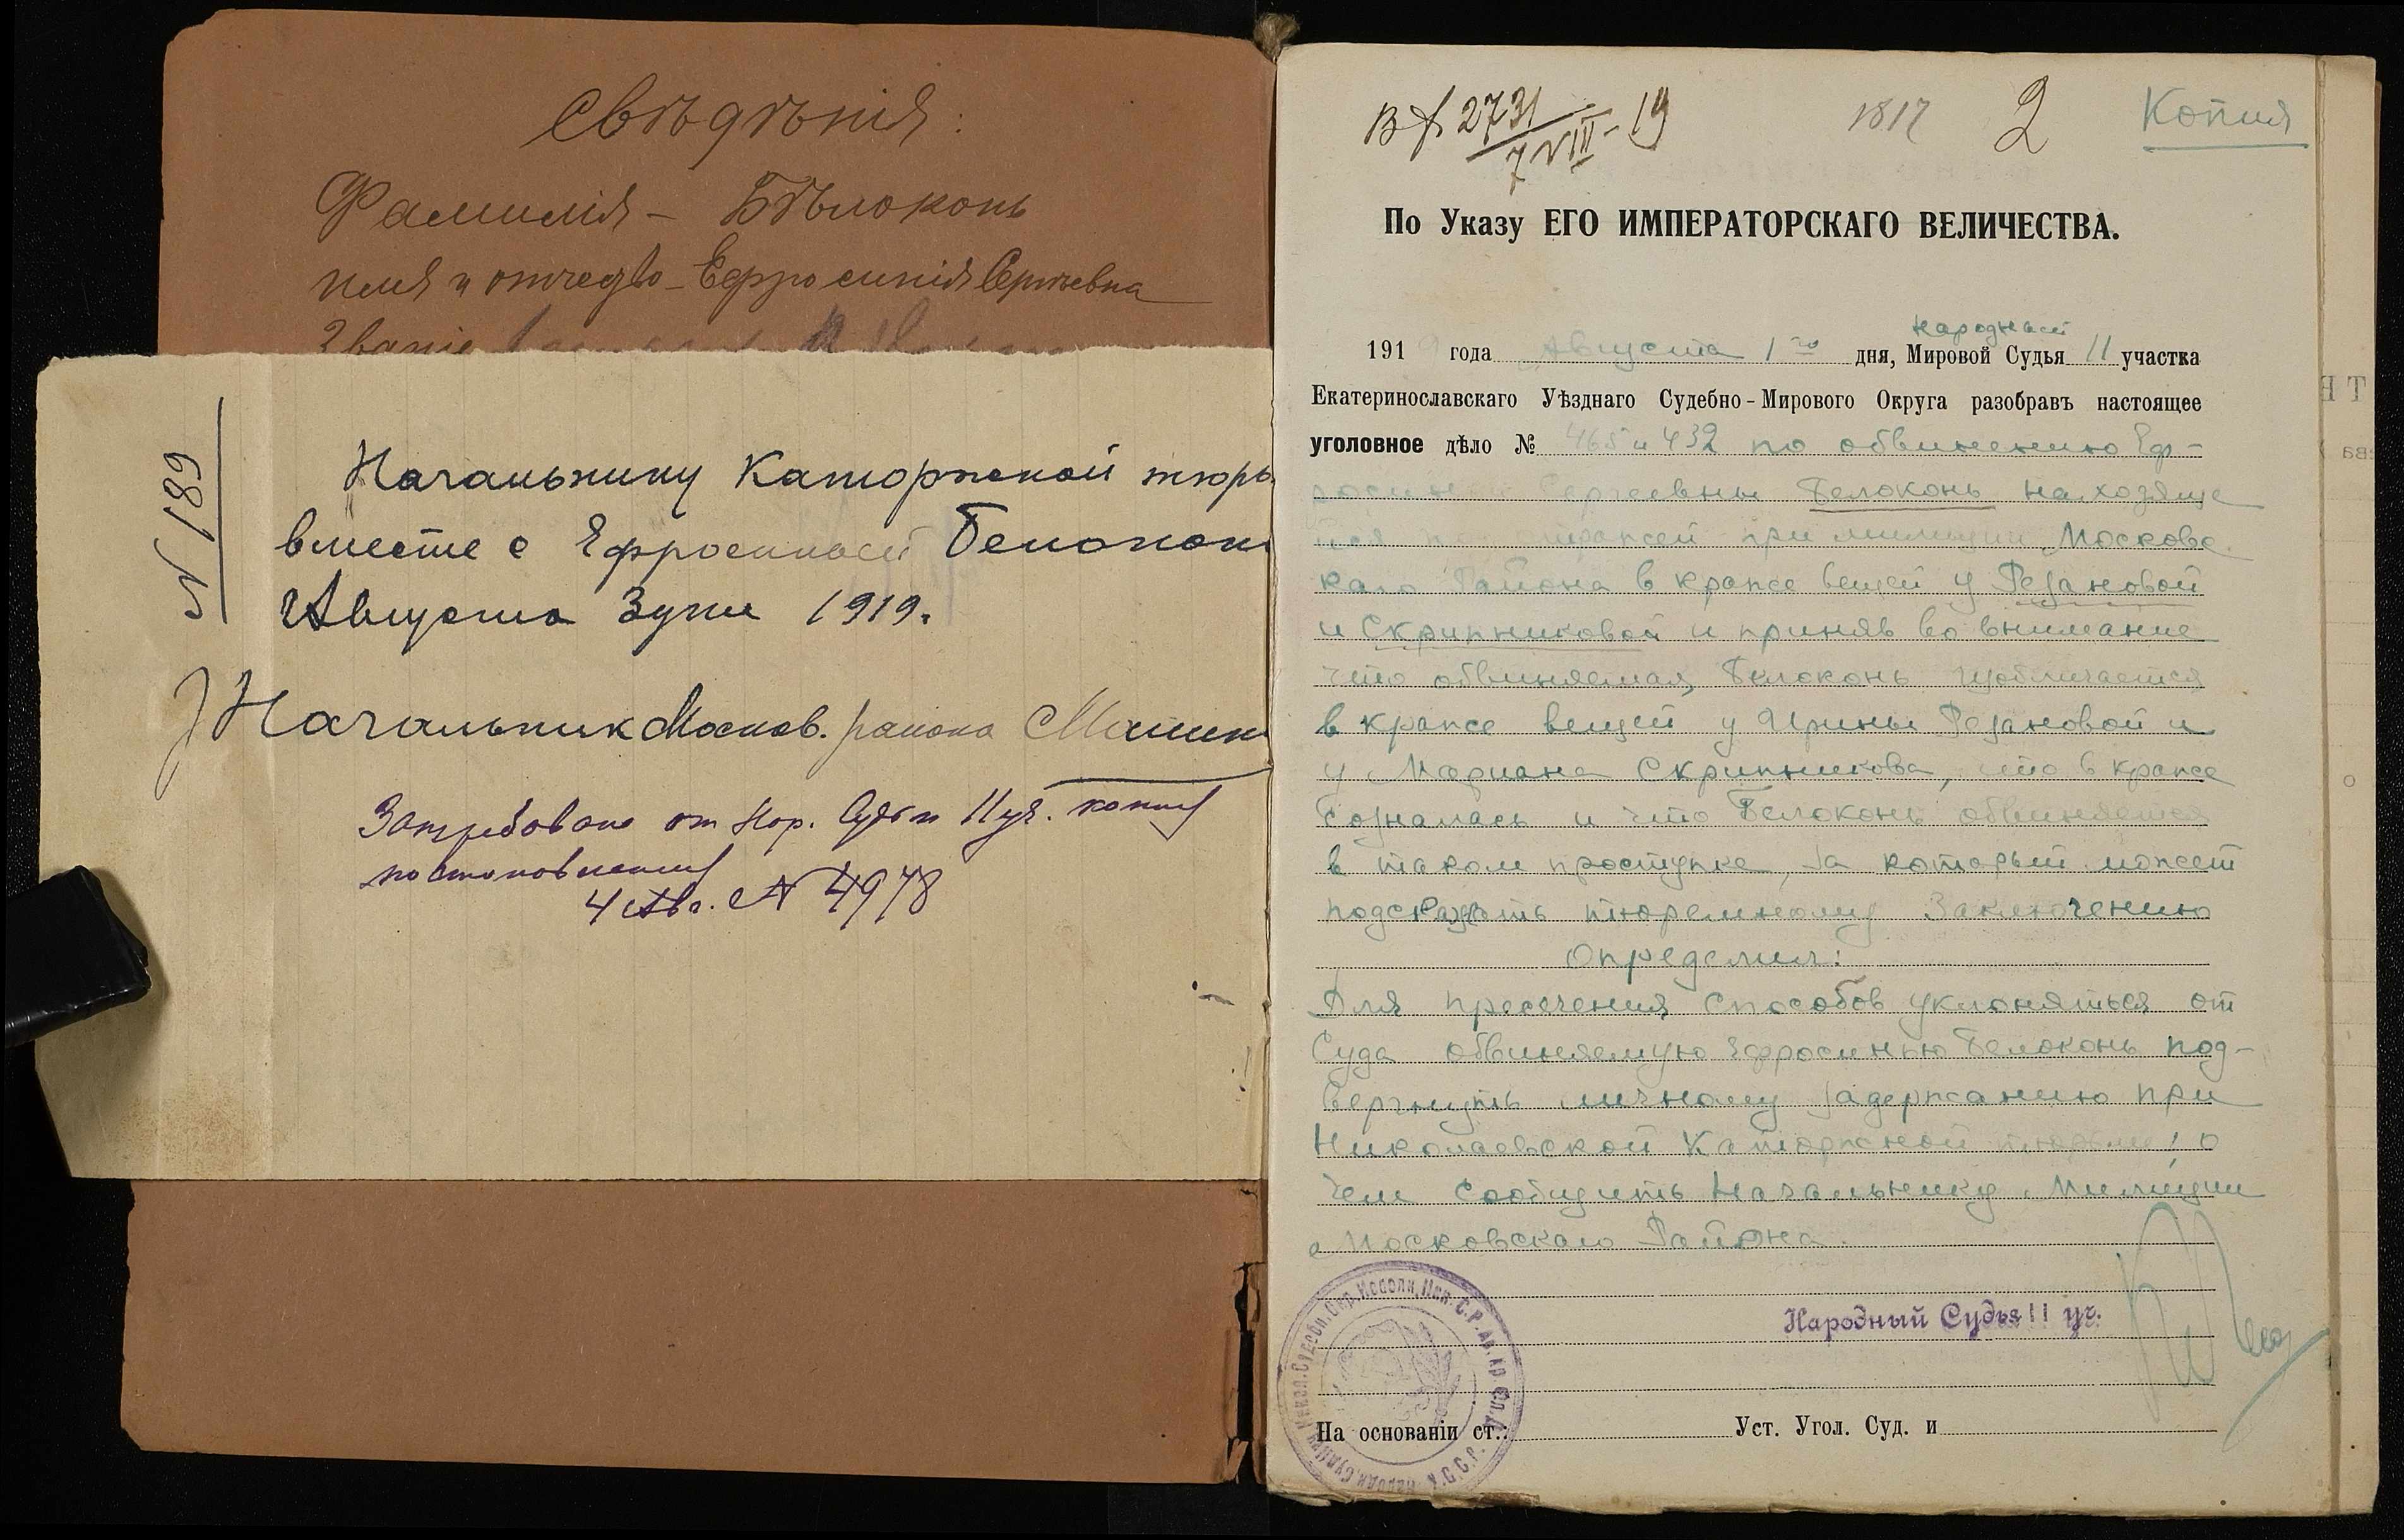 Свѣдѣнія:
Фамилія – Бѣлоконь
Имя и отчество – Ефросинія Сергѣевна
Званіе
№ 189
Начальнику Каторжной тюрь
вместе с Ефросинией Белоконь
Августа 3 дня 1919.
Начальник Москов. района
Затребовано от Нар. Судьи 11 уч. копию
постановления
4 Авг. № 4978
Вх 2731
7 VIII - 19
1817
2
Копия
По Указу ЕГО ИМПЕРАТОРСКАГО ВЕЛИЧЕСТВА.
Народный
1919 года Августа 1го дня, Мировой Судья 11 участка
Екатеринославскаго Уѣзднаго Судебно-Мирового Округа разобравъ настоящее
уголовное дѣло № 465 и 432 по обвинению Еф-
росиньи Сергеевны Белоконь находяще
йся под стражей при милиции Московс
каго Района в краже вещей у Резановой
и Скрипниковой и приняв во внимание
что обвиняемая Белоконь изобличается
в краже вещей у Ирины Резановой и
у Мариана Скрипникова, что в краже
созналась и что Белоконь обвиняется
в таком проступке, за который может
подлежать тюремному заключению
Определил:
Для пресечения способов уклоняться от
Суда обвиняемую Ефросинью Белоконь под-
вергнуть личному задержанию при
Николаевской Каторжной тюрьме, о
чем сообщить Начальнику Милиции
Московскаго Района.
Народный Судья 11 уч.
На основаніи ст. Уст. Угол. Суд. и